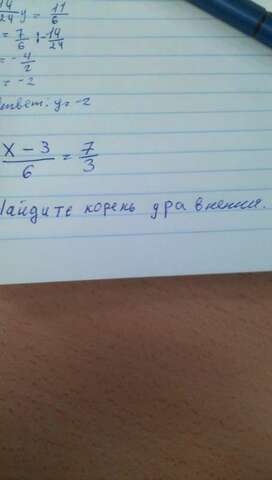 14/24 y = 11/6
= 7/6 : -14/24
= -4/2
= -2
ответ: y = -2
x - 3/6 = 7/3
Найдите корень уравнения.